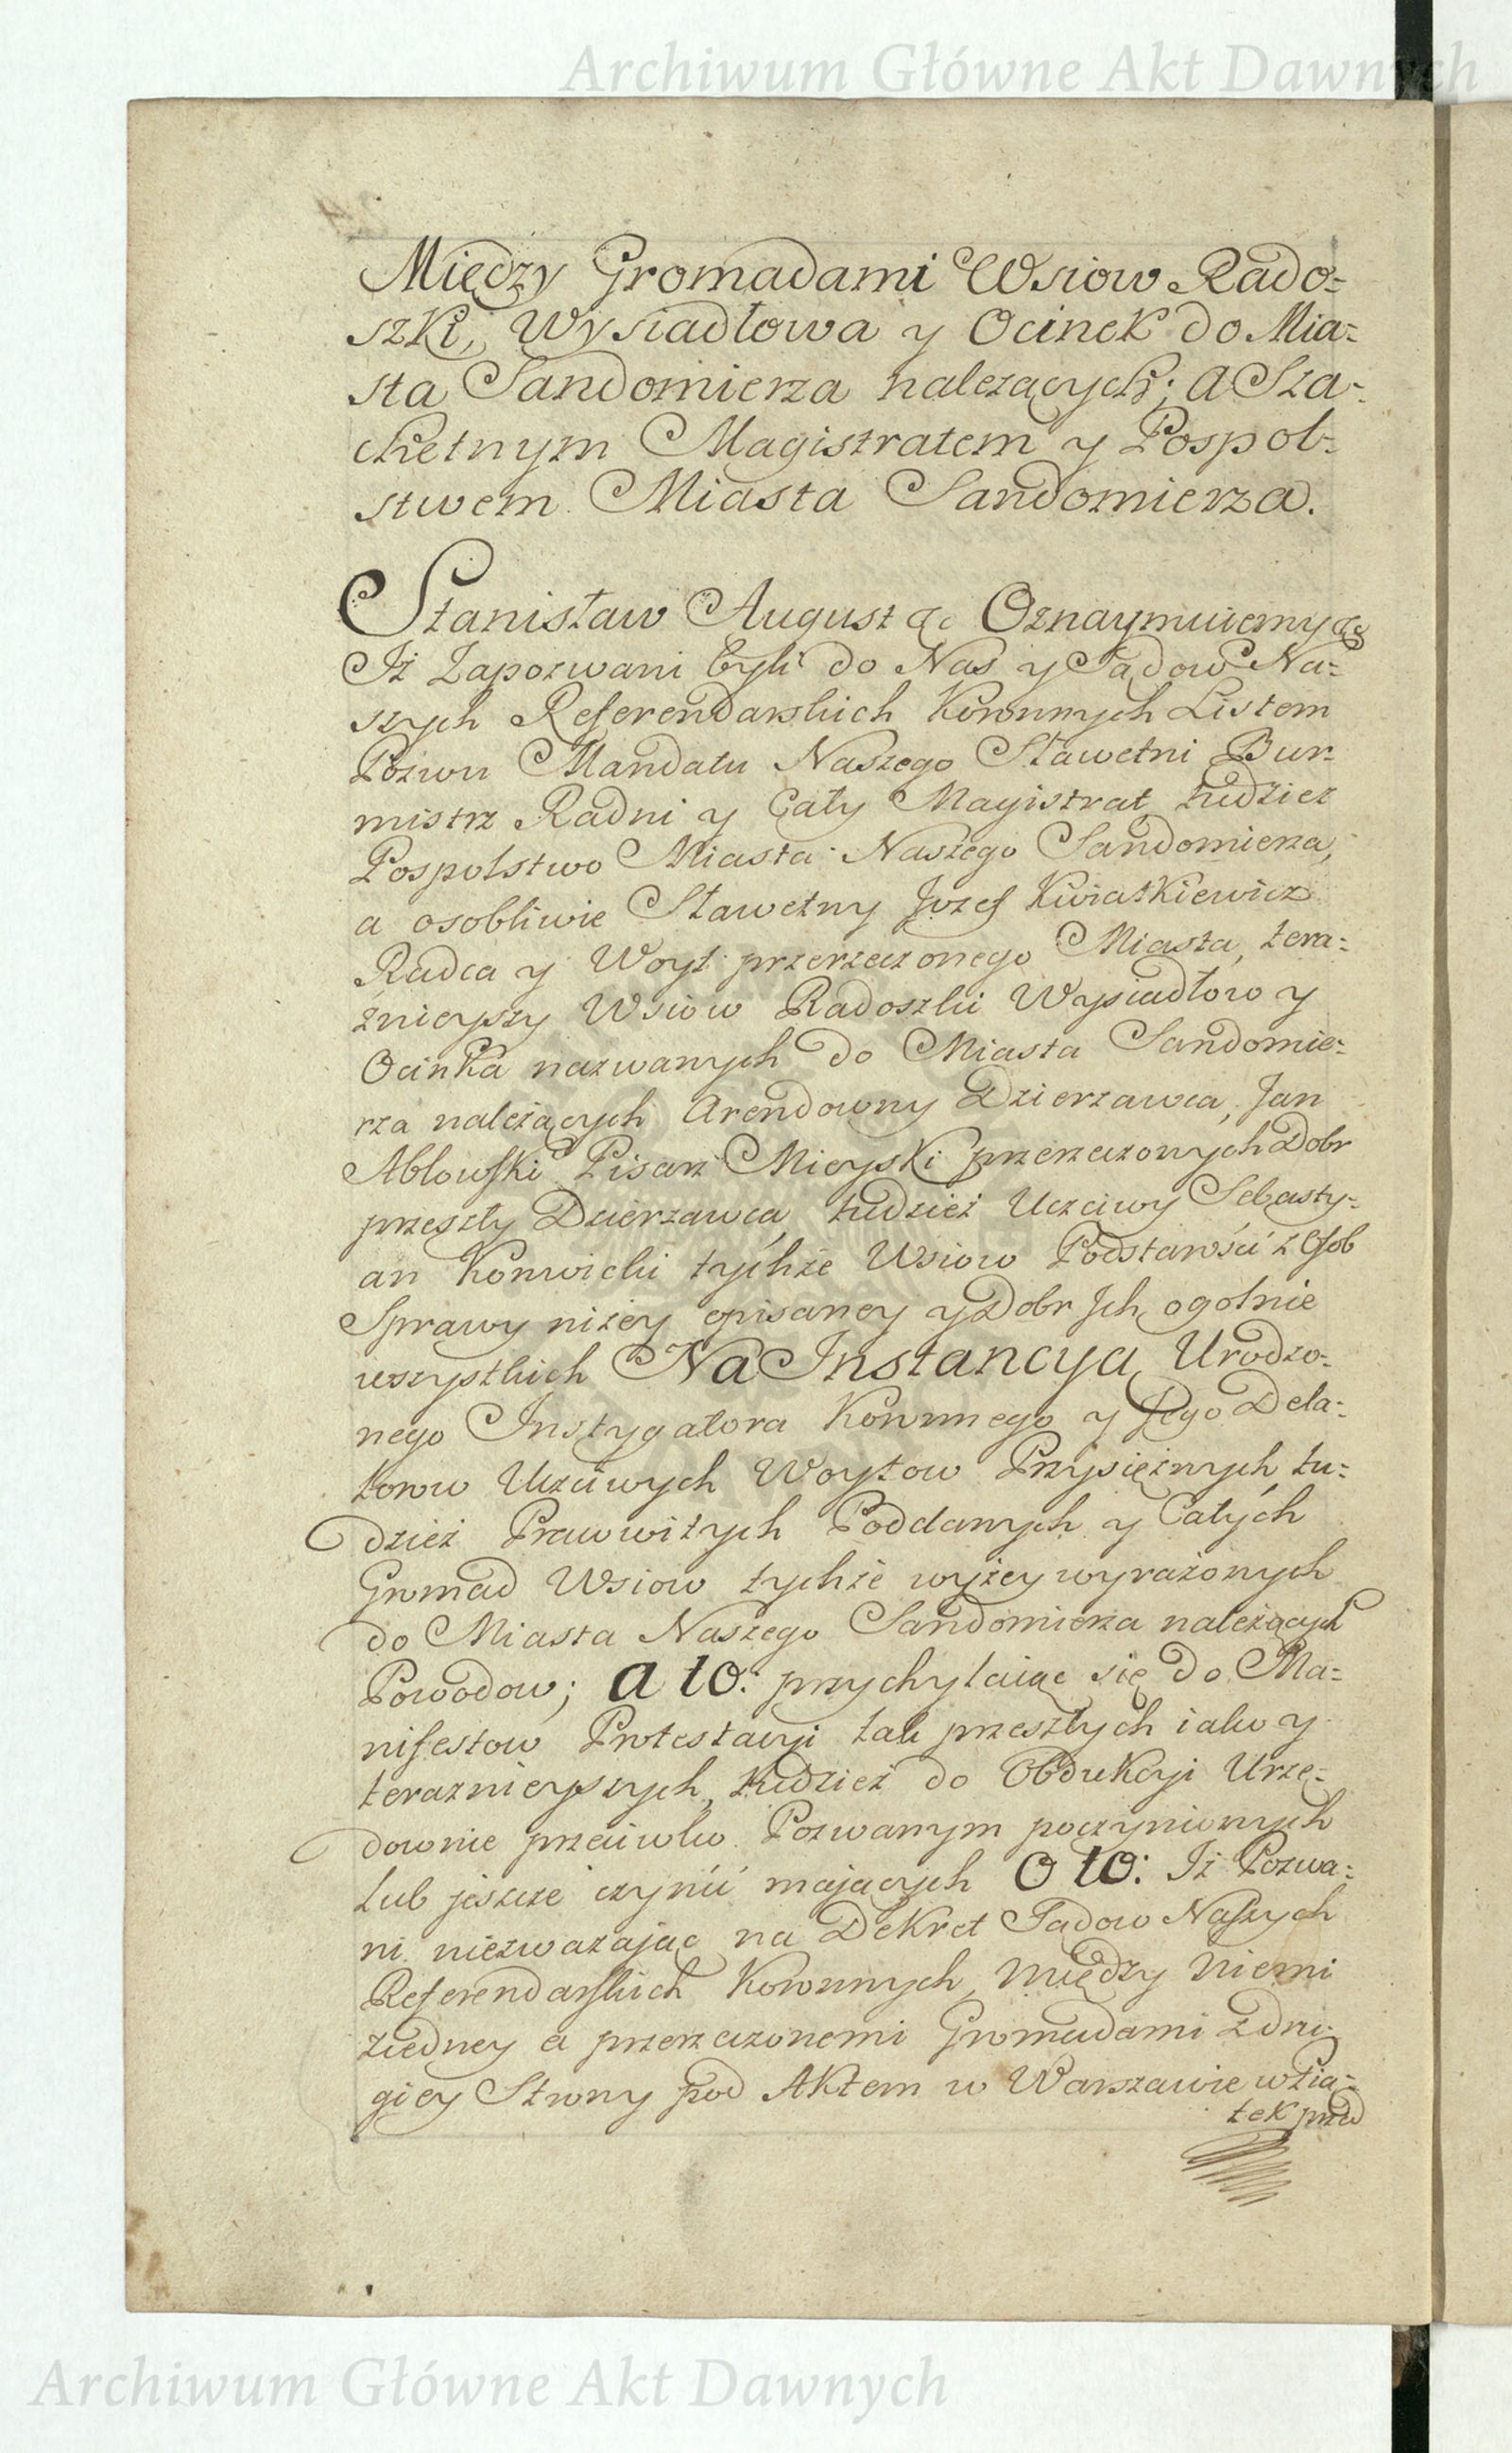 Archiwum Główne Akt Dawnych
Między Gromadami Wsiow Rado=
szki, Wysiadłowa y Ocinek do Mia=
sta Sandomierza należących; a Szla=
chetnym Magistratem y Pospol=
stwem Miasta Sandomierza.
Stanisław August &c Oznaymuiemy &c
Iż Zapozwani byli do Nas y Sądow Na=
szych Referendarskich Koronnych Listem
Pozwu Mandatu Naszego Sławetni Bur=
mistrz Radni y Cały Magistrat, tudziez
Pospolstwo Miasta Naszego Sandomierza,
a osobliwie Sławetny Jozef Kwiatkiewicz
Radca y Woyt przerzeczonego Miasta, tera=
znieyszy Wsiow Radoszki Wysiadłow y
Ocinka nazwanych do Miasta Sandomie=
rza należących Arendowny Dzierzawca, Jan
Abłowski Pisarz Mieyski przerzeczonych Dobr
przeszły Dzierzawca, tudzież Uczciwy Sebasty=
an Konwicki tychże Wsiow Podstarości z Osob
Sprawy niżey opisaney y Dobr Ich ogolnie
wszystkich Na Instancyą Urodzo=
nego Instygatora Koronnego y Jego Dela=
torow Uczciwych Woytow Przysiężnych tu=
dzież Prawowitych Poddanych y Całych
Gromad Wsiow tychże wyżey wyrażonych
do Miasta Naszego Sandomierza należących
Powodow; a to: przychylaiąc się do Ma=
nifestow Protestacyi tak przeszłych iako y
teraznieyszych, tudzież do Obdukcyi Urzę=
downie przeciwko Pozwanym poczynionych
lub jeszcze czynić mających O to: Iż Pozwa=
ni niezważając na Dekret Sądow Naszych
Referendarskich Koronnych, między niemi
z iedney a przerzeczonemi Gromadami z dru=
giey Strony pod Aktem w Warszawie w Pią=
tek przed
Archiwum Główne Akt Dawnych